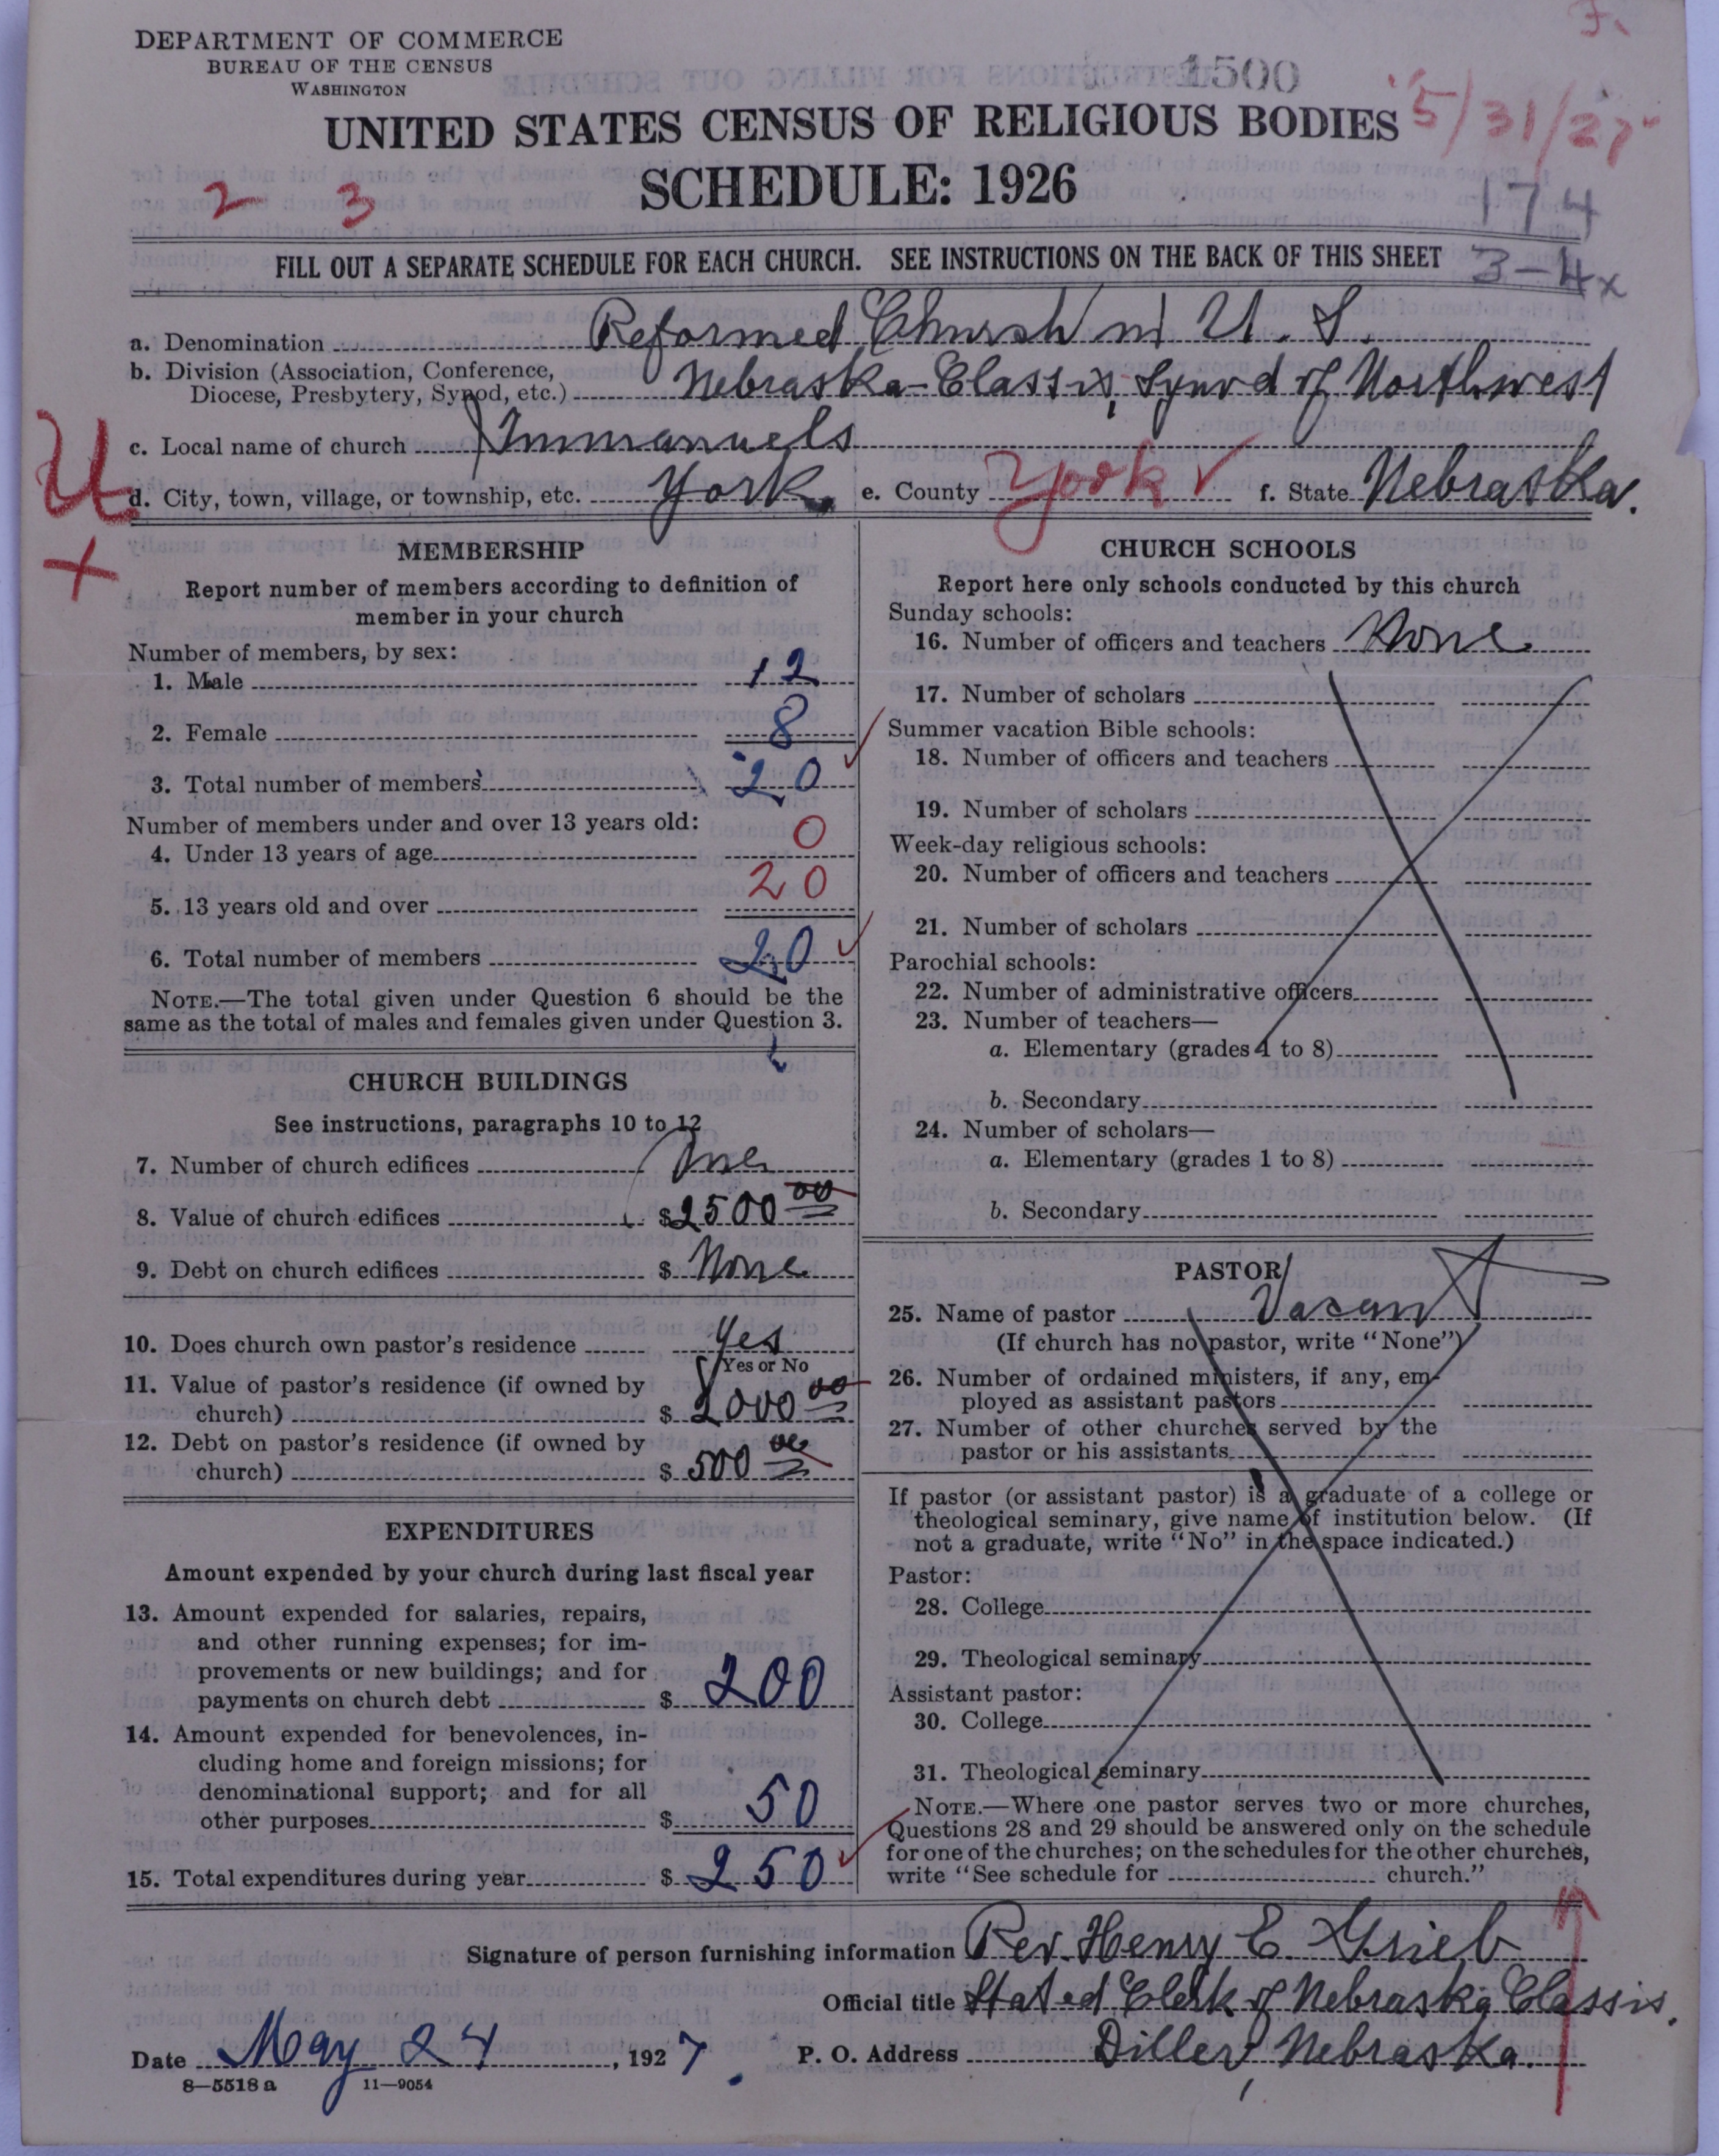 DEPARTMENT OF COMMERCE
BUREAU OF THE CENSUS
WASHINGTON
1500
UNITED STATES CENSUS OF RELIGIOUS BODIES
5/31/27
SCHEDULE: 1926
2 3
174
FILL OUT A SEPARATE SCHEDULE FOR EACH CHURCH. SEE INSTRUCTIONS ON THE BACK OF THIS SHEET
3-4x
a. Denomination Reformed Church in U. S.
b. Division (Association, Conference, Diocese, Presbytery, Synod, etc.) Nebraska-Classis, Synod of Northwest
c. Local name of church Immanuels
d. City, town, village, or township, etc. York e. County York f. State Nebraska.
MEMBERSHIP
Report number of members according to definition of
member in your church
Number of members, by sex:
1. Male 12
2. Female 8
3. Total number of members 20
Number of members under and over 13 years old:
4. Under 13 years of age 0
5. 13 years old and over 20
6. Total number of members 20
NOTE.—The total given under Question 6 should be the
same as the total of males and females given under Question 3.
CHURCH BUILDINGS
See instructions, paragraphs 10 to 12
7. Number of church edifices One
8. Value of church edifices $2500 00
9. Debt on church edifices $ None
10. Does church own pastor's residence Yes
Yes or No
11. Value of pastor's residence (if owned by
church) $ 2000 00
12. Debt on pastor's residence (if owned by
church) $ 500 00
EXPENDITURES
Amount expended by your church during last fiscal year
13. Amount expended for salaries, repairs,
and other running expenses; for im-
provements or new buildings; and for
payments on church debt $ 200
14. Amount expended for benevolences, in-
cluding home and foreign missions; for
denominational support; and for all
other purposes $ 50
15. Total expenditures during year $ 250
CHURCH SCHOOLS
Report here only schools conducted by this church
Sunday schools:
16. Number of officers and teachers None
17. Number of scholars
Summer vacation Bible schools:
18. Number of officers and teachers
19. Number of scholars
Week-day religious schools:
20. Number of officers and teachers
21. Number of scholars
Parochial schools:
22. Number of administrative officers
23. Number of teachers—
a. Elementary (grades 1 to 8)
b. Secondary
24. Number of scholars—
a. Elementary (grades 1 to 8)
b. Secondary
PASTOR
25. Name of pastor Vacant
(If church has no pastor, write "None")
26. Number of ordained ministers, if any, em-
ployed as assistant pastors
27. Number of other churches served by the
pastor or his assistants
If pastor (or assistant pastor) is a graduate of a college or
theological seminary, give name of institution below. (If
not a graduate, write "No" in the space indicated.)
Pastor:
28. College
29. Theological seminary
Assistant pastor:
30. College
31. Theological seminary
NOTE.—Where one pastor serves two or more churches,
Questions 28 and 29 should be answered only on the schedule
for one of the churches; on the schedules for the other churches,
write "See schedule for church."
Signature of person furnishing information Rev. Henry E. Grieb
Official title Stated Clerk of Nebraska Classis.
Date May 24, 1927. P. O. Address Diller, Nebraska.
8—5518 a 11—9054